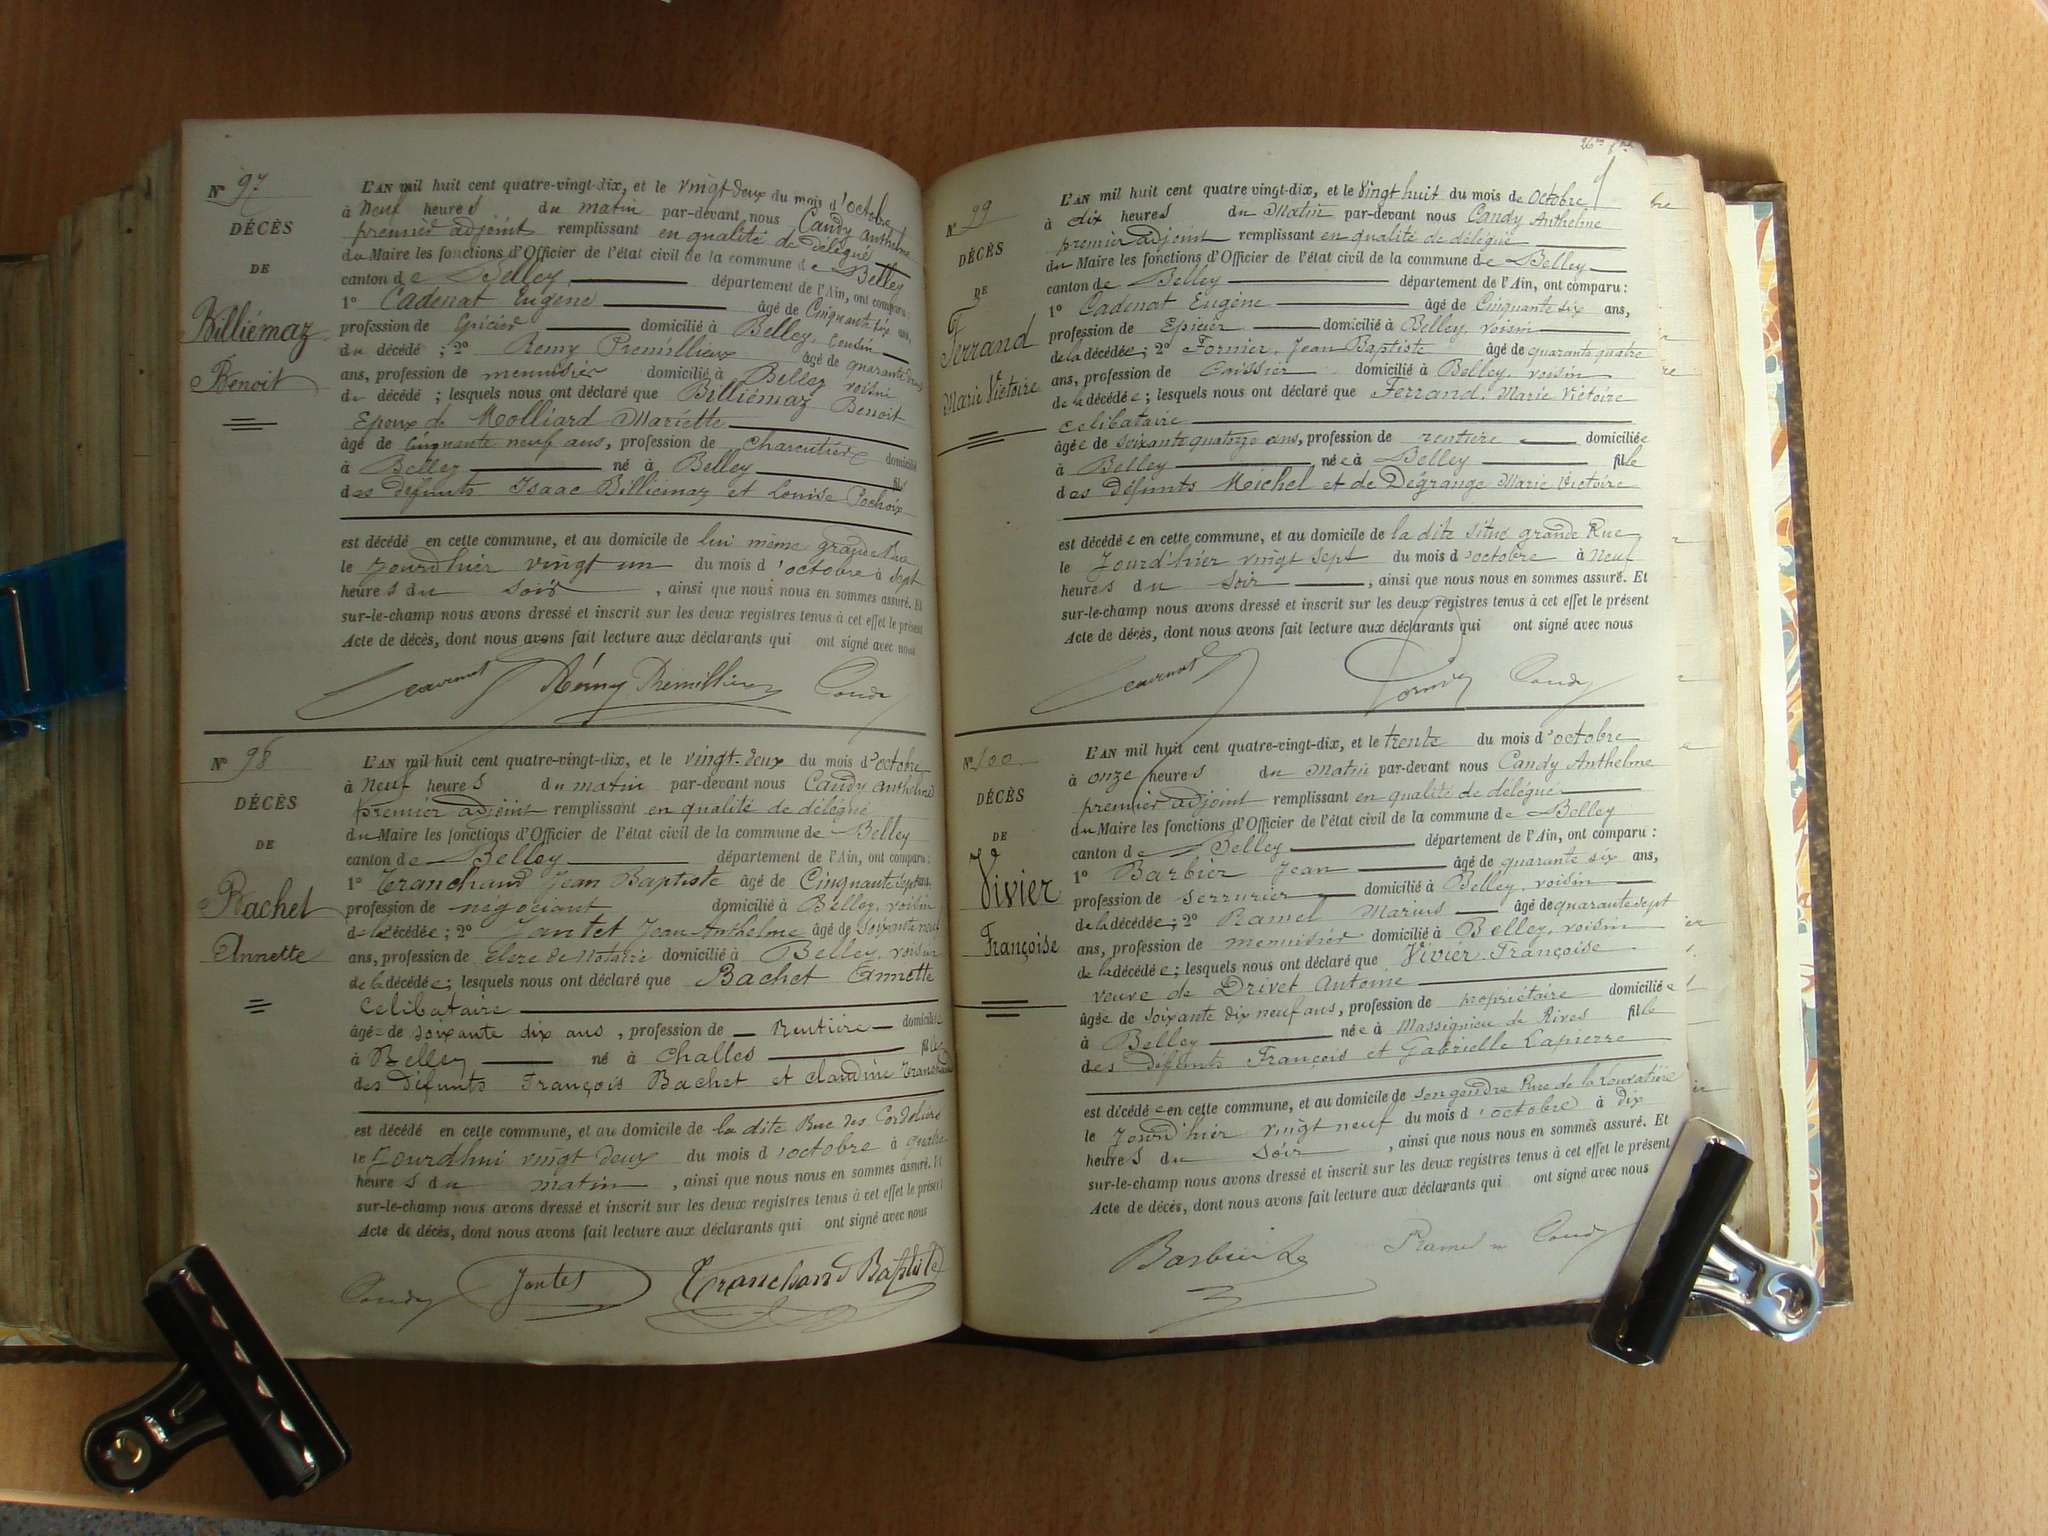 N° 97
DÉCÈS
DE
Billiémaz
Benoit
L'AN mil huit cent quatre-vingt-dix, et le vingt deux du mois d'octobre
à neuf heures du matin par-devant nous Candy Anthelme
premier adjoint remplissant en qualité de délégué
du Maire les fonctions d'Officier de l'état civil de la commune de Belley
canton de Belley département de l'Ain, ont comparu:
1° Cadenat Eugène âgé de Cinquante six ans,
profession de Epicier domicilié à Belley, cousin
du décédé ; 2° Remy Premillieux âgé de quarante
ans, profession de menuisier domicilié à Belley voisin
du décédé ; lesquels nous ont déclaré que Billiémaz Benoit
Epoux de Molliard Mariette
âgé de cinquante neuf ans, profession de Charcutier domicilié
à Belley né à Belley fils
des défunts Isaac Billiémaz et Louise Pochoix
est décédé en cette commune, et au domicile de lui même grande Rue
le Jourd'hier vingt un du mois d'octobre à sept
heures du soir , ainsi que nous nous en sommes assuré. Et
sur-le-champ nous avons dressé et inscrit sur les deux registres tenus à cet effet le présent
Acte de décès, dont nous avons fait lecture aux déclarants qui ont signé avec nous
Rémy Prémillieux Candy
N° 98
DÉCÈS
DE
Bachet
Annette
L'AN mil huit cent quatre-vingt-dix, et le vingt-deux du mois d'octobre
à neuf heures du matin par-devant nous Candy Anthelme
premier adjoint remplissant en qualité de délégué
du Maire les fonctions d'Officier de l'état civil de la commune de Belley
canton de Belley département de l'Ain, ont comparu:
1° Tranchand Jean Baptiste âgé de Cinquante sept ans,
profession de négociant domicilié à Belley, voisin
de la décédée ; 2° Jantet Jean Anthelme âgé de soixante neuf
ans, profession de Clerc de Notaire domicilié à Belley, voisin
de la décédée; lesquels nous ont déclaré que Bachet Annette
Celibataire
âgée de soixante dix ans , profession de Rentière domiciliée
à Belley né à Challes fille
des défunts François Bachet et Claudine Tranchand
est décédé en cette commune, et au domicile de la dite Rue des Cordeliers
le Jourd'hui vingt deux du mois d'octobre à quatre
heures du matin , ainsi que nous nous en sommes assuré. Et
sur-le-champ nous avons dressé et inscrit sur les deux registres tenus à cet effet le présent
Acte de décès, dont nous avons fait lecture aux déclarants qui ont signé avec nous
Candy Jantet Tranchand Baptiste
N° 99
DÉCÈS
DE
Ferrand
Marie Victoire
L'AN mil huit cent quatre-vingt-dix, et le vingt huit du mois de octobre
à dix heures du Matin par-devant nous Candy Anthelme
premier adjoint remplissant en qualité de délégué
du Maire les fonctions d'Officier de l'état civil de la commune de Belley
canton de Belley département de l'Ain, ont comparu :
1° Cadenat Eugène âgé de Cinquante six ans,
profession de Epicier domicilié à Belley, voisin
de la décédée; 2° Fornier, Jean Baptiste âgé de quarante quatre
ans, profession de Caissier domicilié à Belley, voisin
de la décédée; lesquels nous ont déclaré que Ferrand, Marie Victoire
celibataire
âgée de soixante quatorze ans, profession de rentière domiciliée
à Belley née à Belley fille
des défunts Michel et de Dégrange Marie Victoire
est décédée en cette commune, et au domicile de la dite situé grande Rue
le Jourd'hier vingt sept du mois d'octobre à neuf
heures du soir , ainsi que nous nous en sommes assuré. Et
sur-le-champ nous avons dressé et inscrit sur les deux registres tenus à cet effet le présent
Acte de décès, dont nous avons fait lecture aux déclarants qui ont signé avec nous
Candy
N° 100
DÉCÈS
DE
Vivier
Françoise
L'AN mil huit cent quatre-vingt-dix, et le trente du mois d'octobre
à onze heures du Matin par-devant nous Candy Anthelme
premier adjoint remplissant en qualité de délégué
du Maire les fonctions d'Officier de l'état civil de la commune de Belley
canton de Belley département de l'Ain, ont comparu :
1° Barbier Jean âgé de quarante six ans,
profession de serrurier domicilié à Belley, voisin
de la décédée; 2° Ramel Marius âgé de quarante sept
ans, profession de menuisier domicilié à Belley, voisin
de la décédée; lesquels nous ont déclaré que Vivier Françoise
veuve de Drivet Antoine
âgée de soixante dix neuf ans, profession de propriétaire domiciliée
à Belley née à Massignieu de Rives fille
des défunts François et Gabrielle Lapierre
est décédée en cette commune, et au domicile de son gendre Rue de la
le Jourd'hier vingt neuf du mois d'octobre à dix
heures du soir , ainsi que nous nous en sommes assuré. Et
sur-le-champ nous avons dressé et inscrit sur les deux registres tenus à cet effet le présent
Acte de décès, dont nous avons fait lecture aux déclarants qui ont signé avec nous
Ramel m Candy